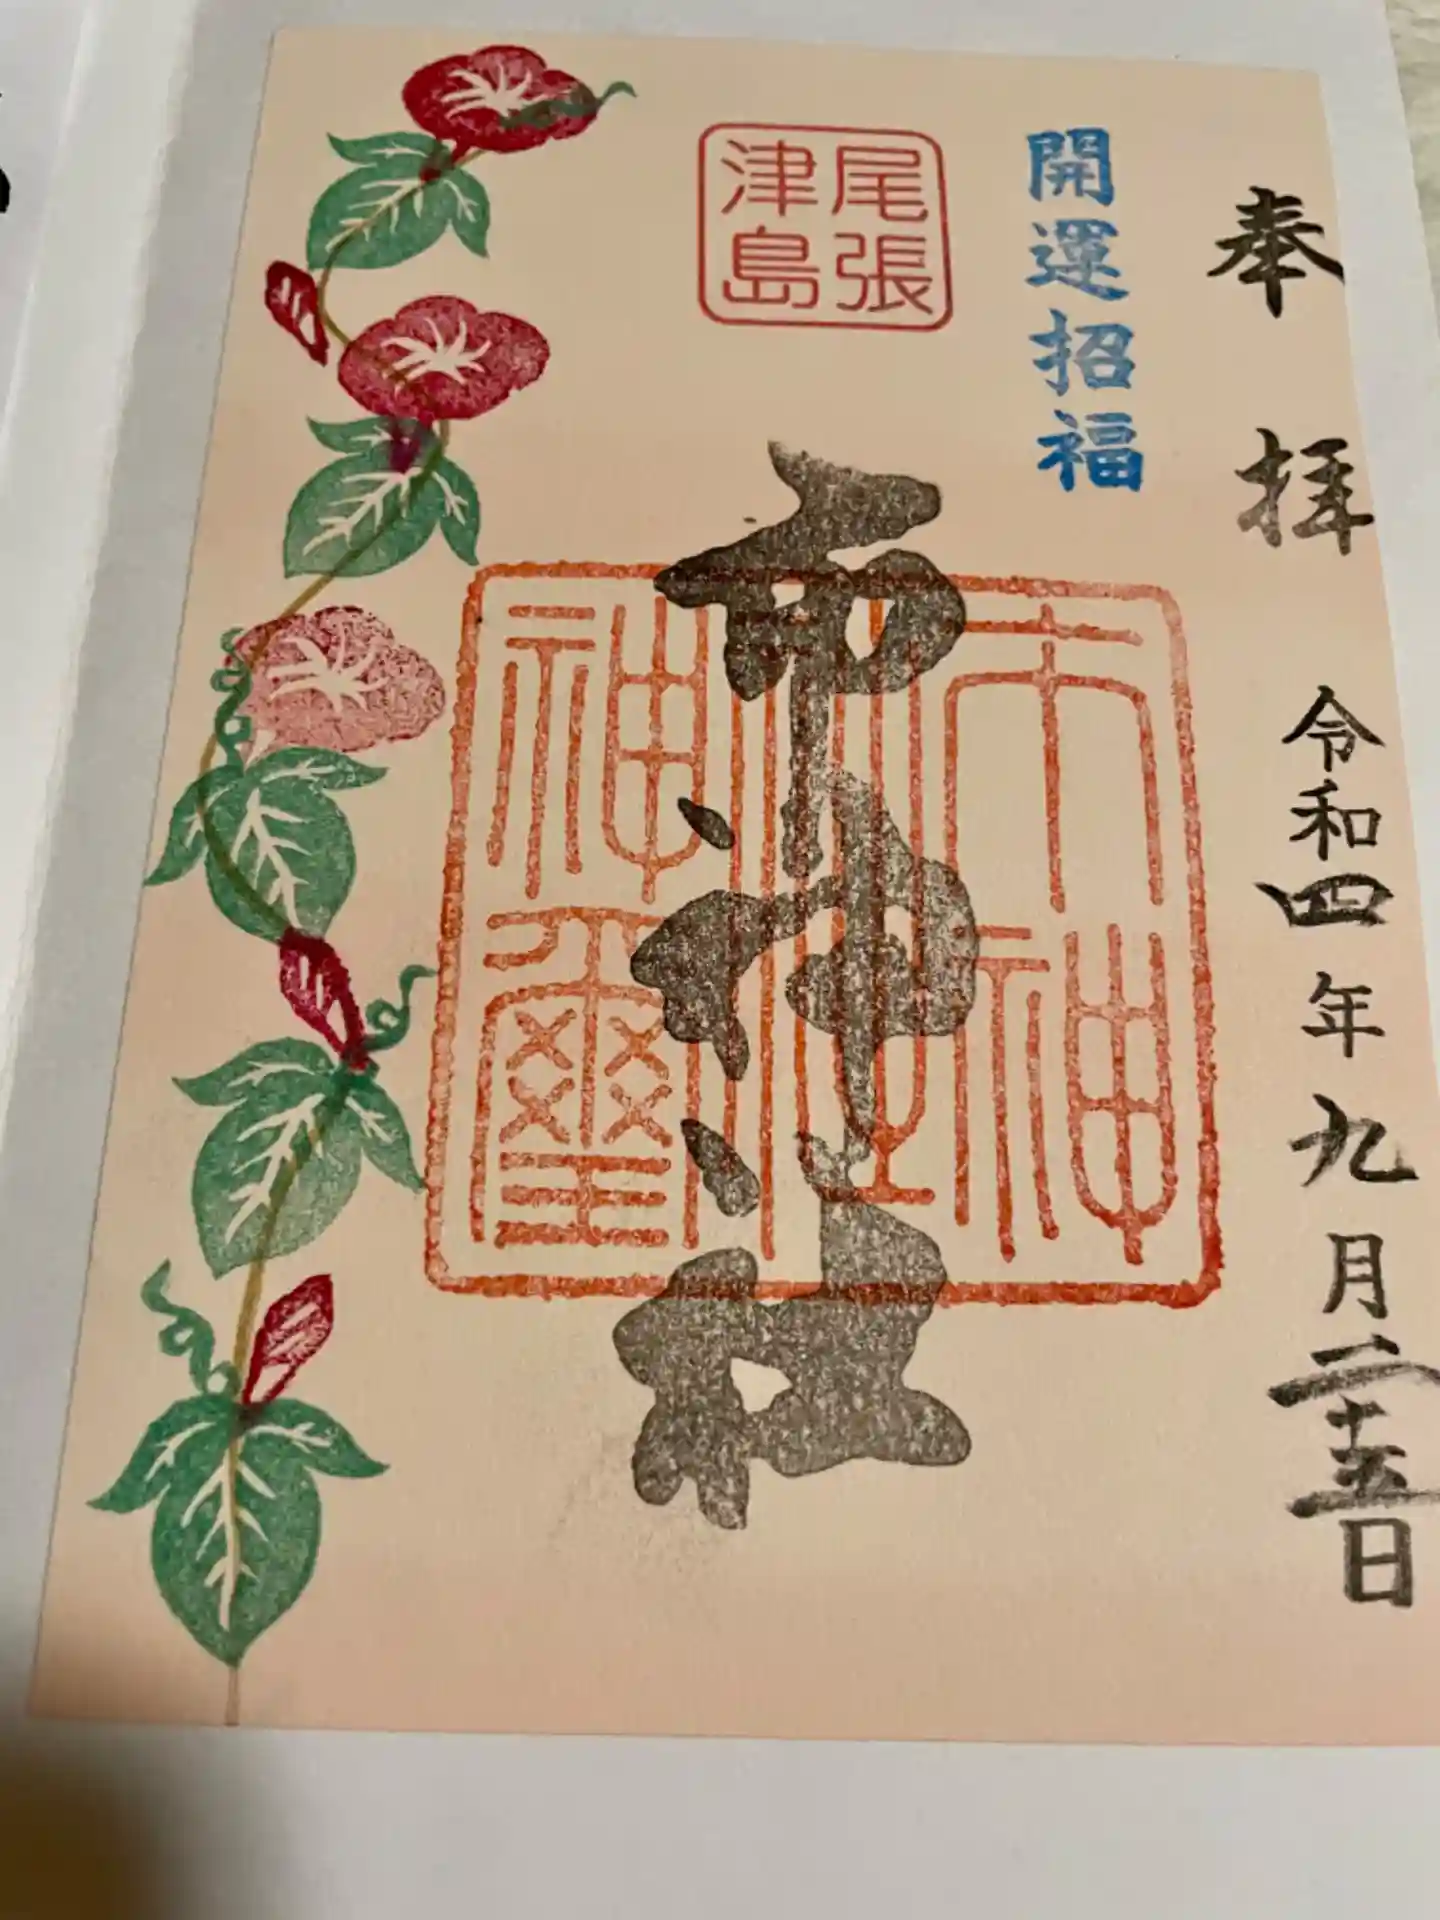 奉拝
令和四年九月二十五日
開運招福
尾張
津島
市神社
市神
神社
神璽